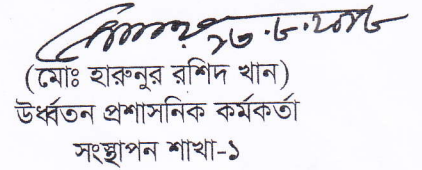 ২৩.৮.২০১৮
(মোঃ হারুনুর রশিদ খান)
উর্ধ্বতন প্রশাসনিক কর্মকর্তা
সংস্থাপন শাখা-১